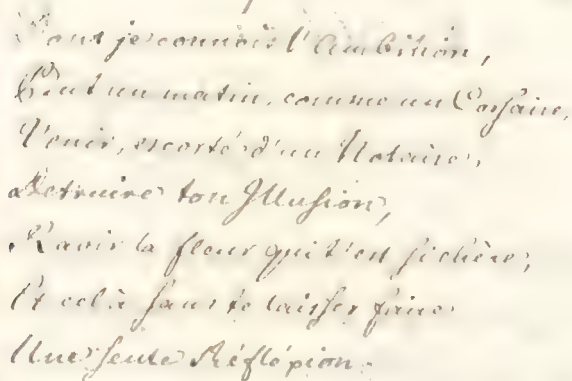 Dont je connois l'Ambition,
Peut un matin, comme un Corsaire,
Venir, escorté d'un Notaire,
Détruire ton Illusion,
Ravir la fleur qui t'est si chère;
Et celà sans te laisser faire
Une seule Réfléxion.